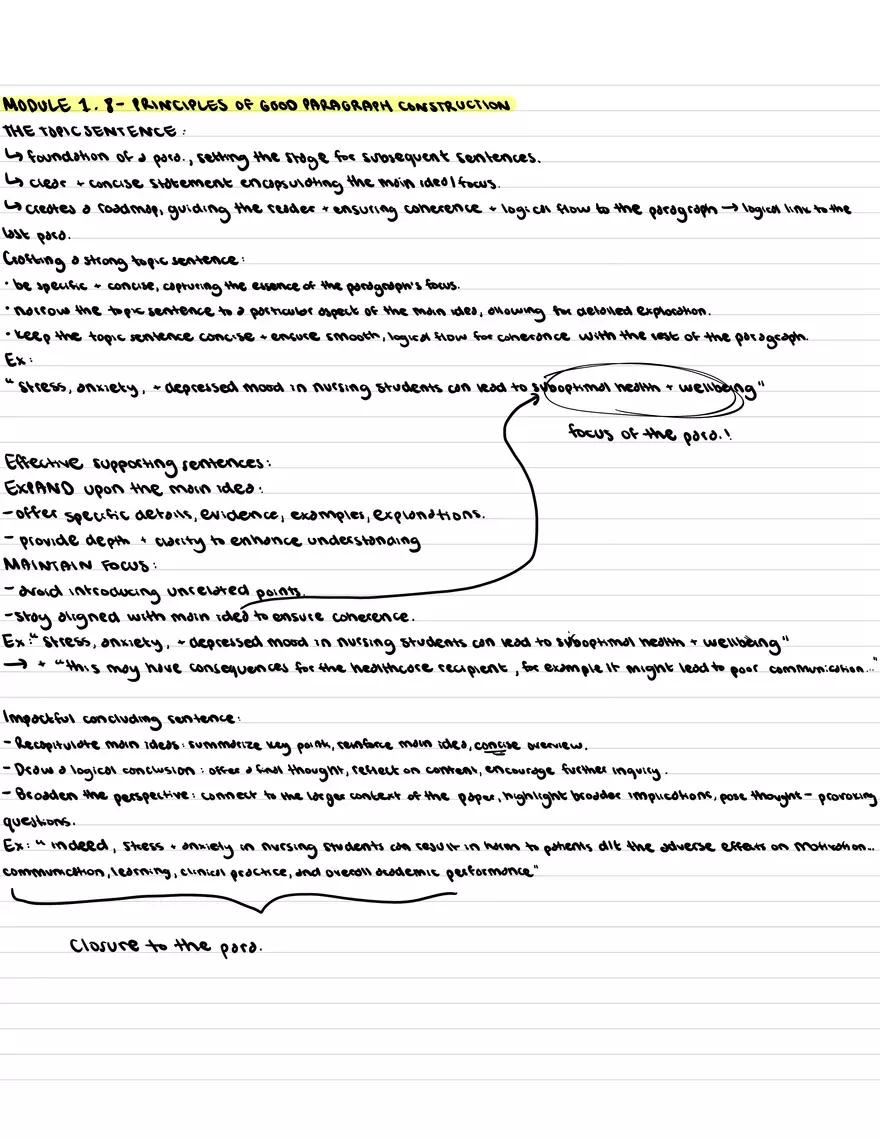 MODULE 1.8 - PRINCIPLES OF GOOD PARAGRAPH CONSTRUCTION
THE TOPIC SENTENCE:
↳ foundation of a para., setting the stage for subsequent sentences.
↳ clear + concise statement encapsulating the main idea/focus.
↳ creates a roadmap, guiding the reader + ensuring coherence + logical flow to the paragraph → logical link to the
last para.
Crafting a strong topic sentence:
• be specific + concise, capturing the essence of the paragraph's focus.
• narrow the topic sentence to a particular aspect of the main idea, allowing for detailed exploration.
• keep the topic sentence concise + ensure smooth, logical flow for coherance with the rest of the paragraph.
Ex:
" Stress, anxiety, + depressed mood in nursing students can lead to suboptimal health + wellbeing"
focus of the para.!
Effective supporting sentences:
EXPAND upon the main idea:
- offer specific details, evidence, examples, explanations.
- provide depth + clarity to enhance understanding
MAINTAIN FOCUS:
- avoid introducing unrelated points.
- stay aligned with main idea to ensure coherence.
Ex: " Stress, anxiety, + depressed mood in nursing students can lead to suboptimal health + wellbeing"
→ + "this may have consequences for the healthcare recipient, for example it might lead to poor communication..."
Impactful concluding sentence:
- Recapitulate main ideas: summarize key point, reinforce main idea, concise overview.
- Draw a logical conclusion: offer a final thought, reflect on content, encourage further inquiry.
- Broaden the perspective: connect to the larger context of the paper, highlight broader implications, pose thought-provoking
questions.
Ex: " indeed, stress + anxiety in nursing students can result in harm to patients d/t the adverse effects on motivation..
communication, learning, clinical practice, and overall academic performance"
Closure to the para.